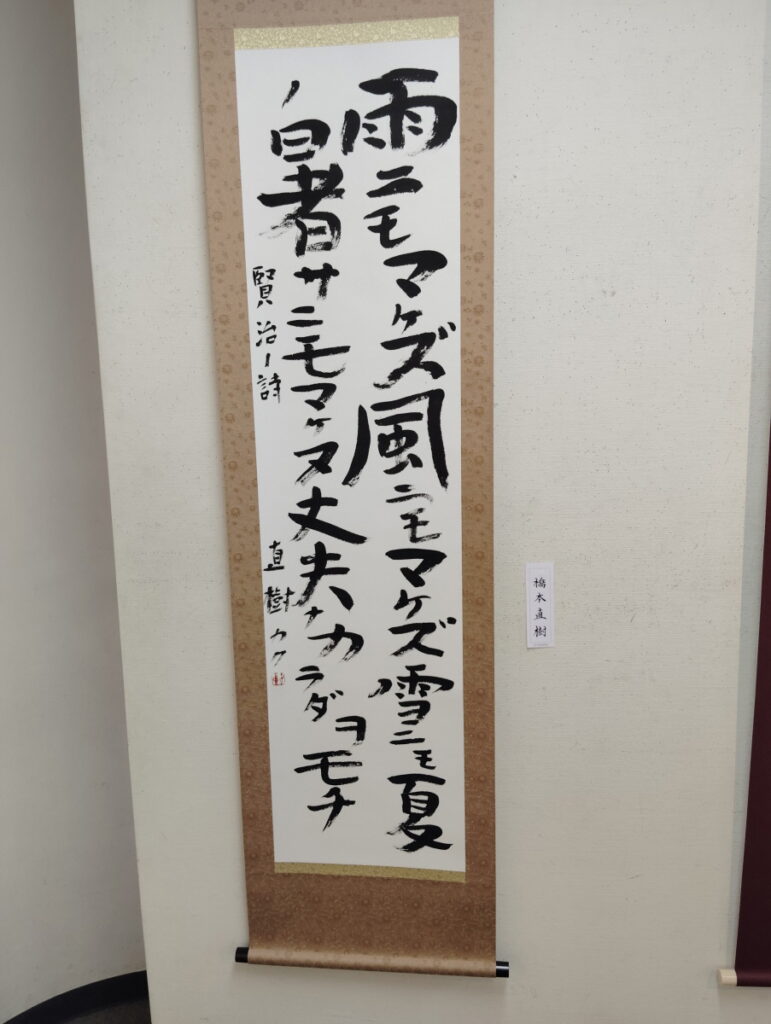 雨ニモマケズ風ニモマケズ雪ニモ夏
ノ暑サニモマケヌ丈夫ナカラダヲモチ
賢治ノ詩
直樹カク
橋本直樹